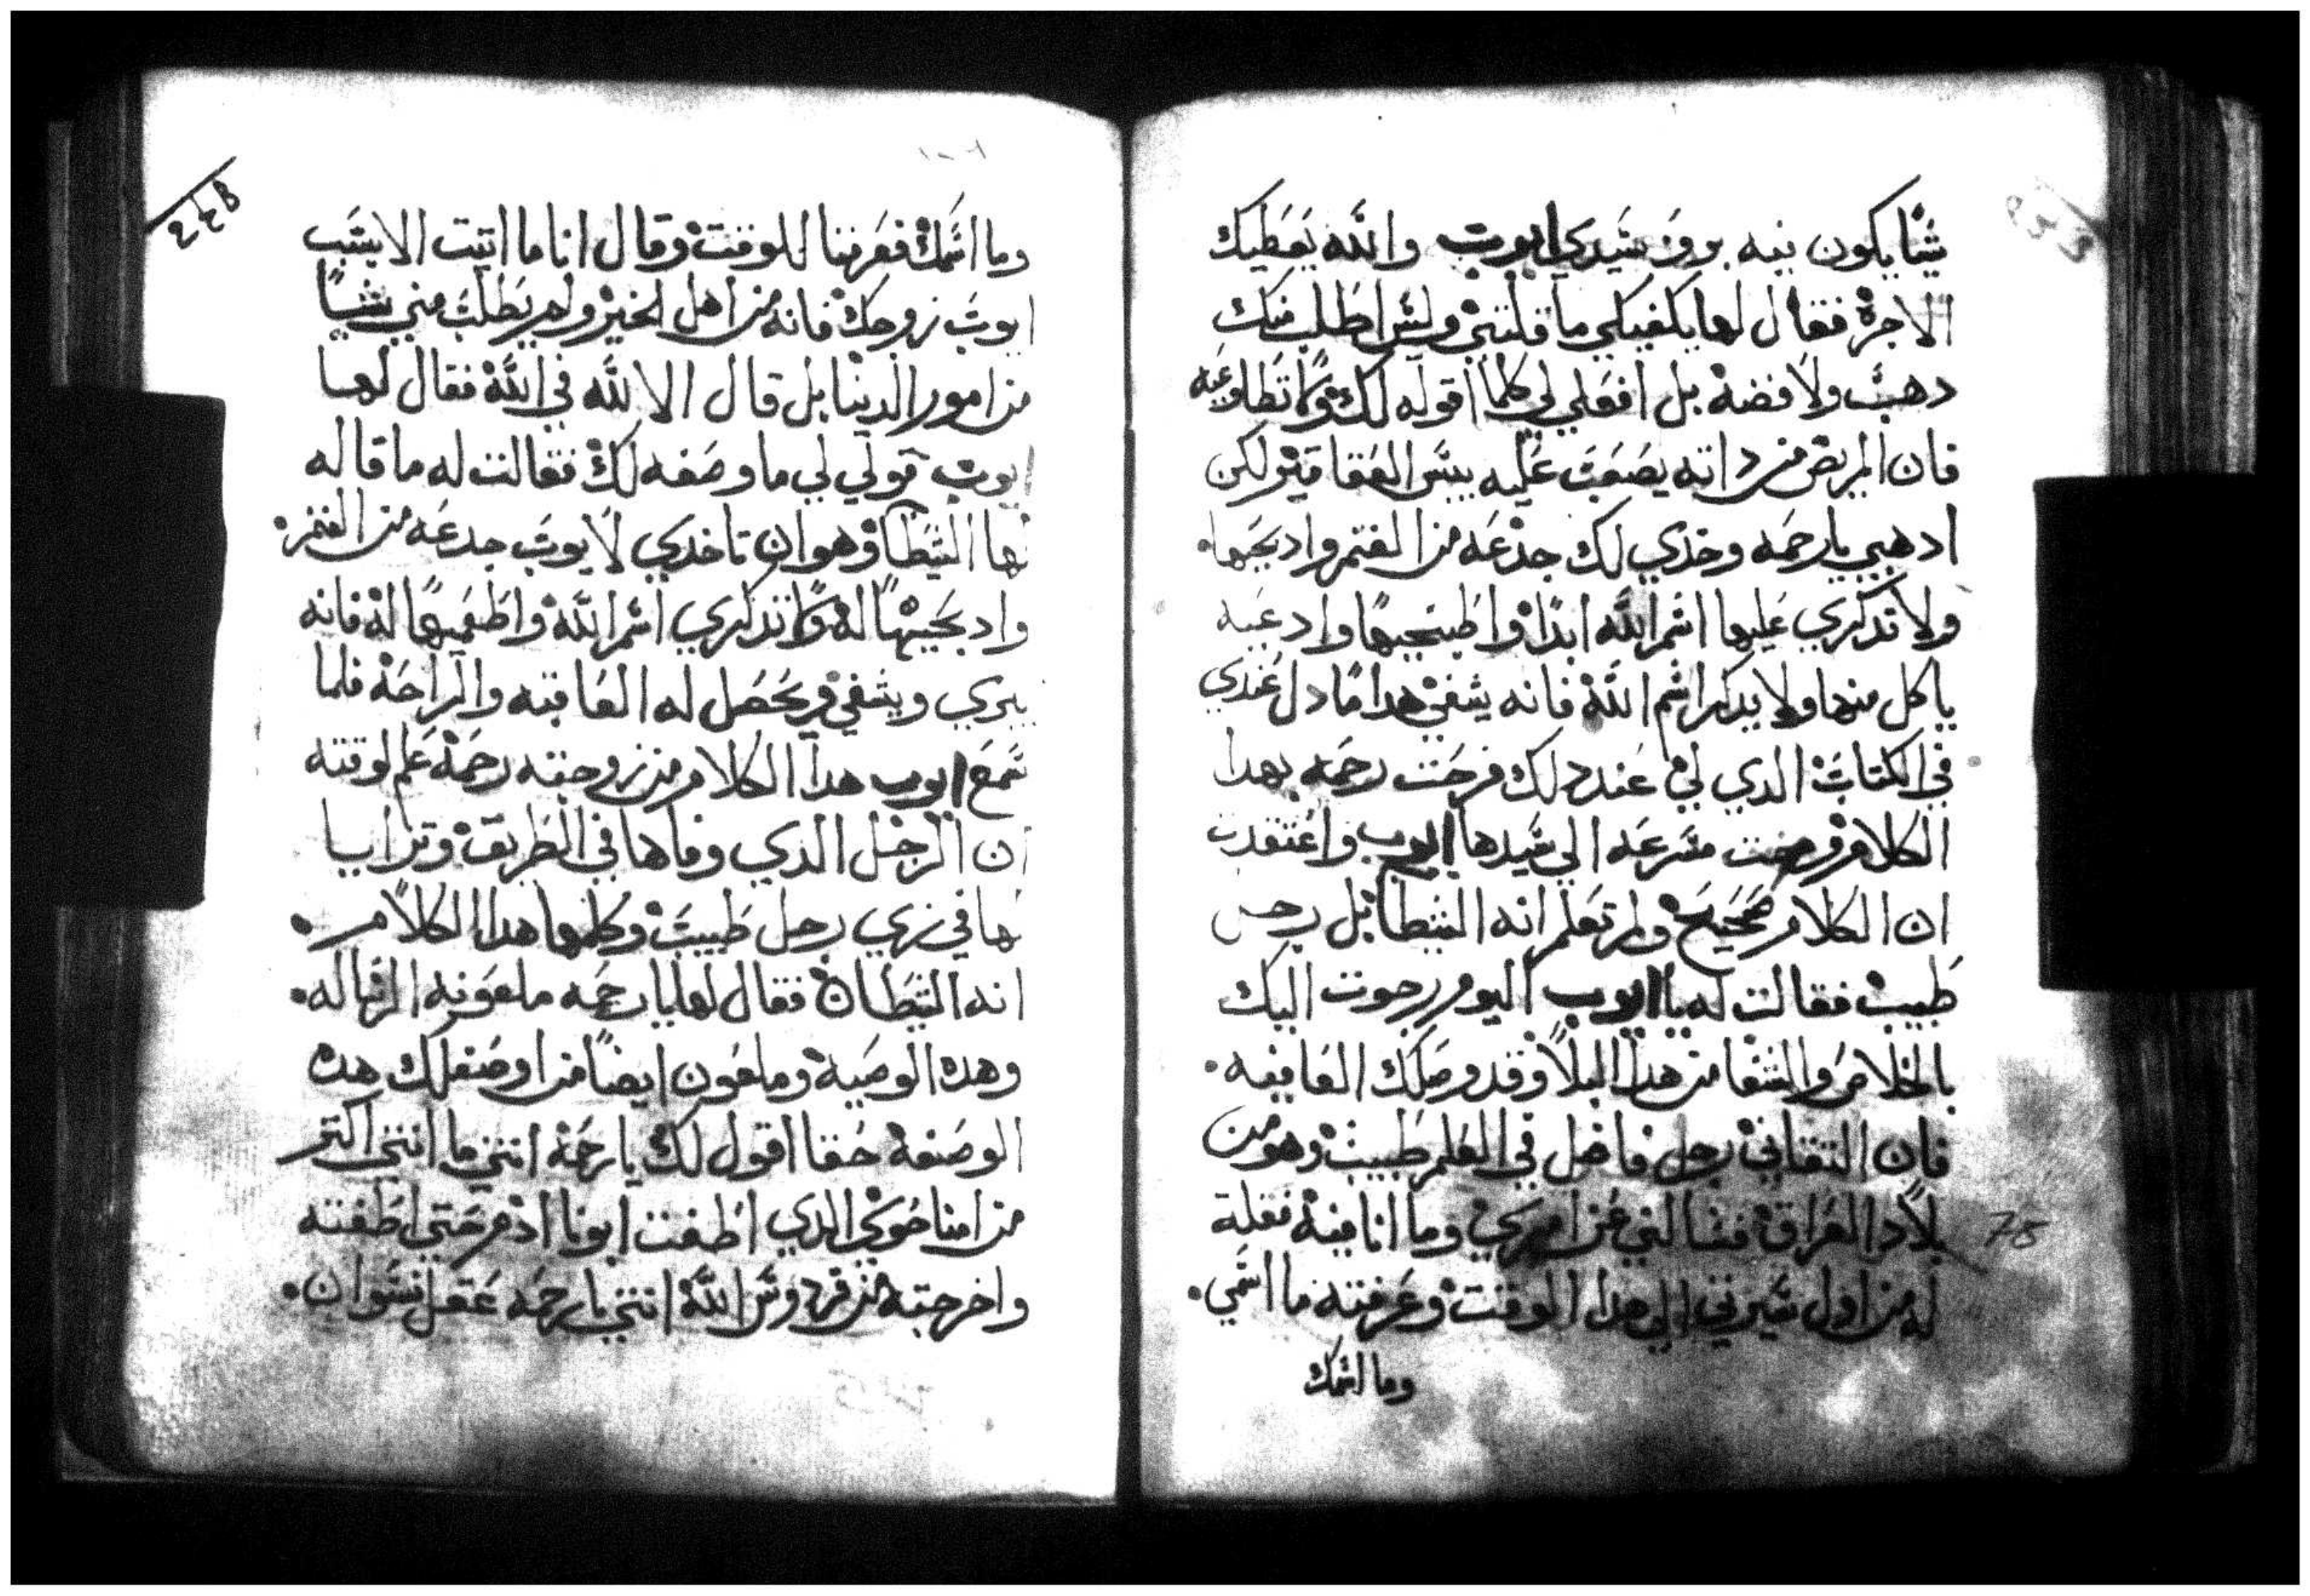 شيا يكون فيه برو سيدي ايوب والله يعطيك
الاجرة فقال لها يكفيكي ما قلتي وليس اطلب منك
دهب ولا فضة بل افعلي لي كلما اقوله لك ولا تطاوعيه
فان المريض من داته يصعب عليه يبس العقاقير لكن
ادهبي يا رحمه وخدي لك جدعه من الغنم وادبحيها.
ولا تدكري عليها اسم الله ابدا واطبخيها وادعيه
ياكل منها ولا يدكر اسم الله فانه يشفي هدا ما دل عندي
في الكتاب الدي لي عند دلك فرحت رحمه بهدا
الكلام ومضت مسرعه الي سيدها ايوب واعتقدت
ان الكلام صحيح ولم تعلم انه الشيطان بل رجل
طبيب فقالت له يا ايوب اليوم رجوت اليك
بالخلاص والشفا من هدا البلا وقد وصلك العافيه.
فان التقاني رجل فاضل في العلم طبيب وهو من
بلاد العراق فسالني عن امري وما انا فيه فقلة
له من اول سيرتي الي هدا الوقت وعرفته ما اسمي.
وما اسمك
وما اسمك فعرفنا للوقت وقال انا ما اتيت الا بسبب
ايوب زوجك فانه من اهل الخير ولم يطلب مني شيا
من امور الدنيا بل قال الا لله في الله فقال لها
ايوب قولي لي ما وصفه لك فقالت له ما قاله
لها الشيطان وهو ان تاخدي لايوب جدعه من الغنم.
وادبحيها له ولا تدكري اسم الله واطعميها له فانه
يبري ويشفي ويحصل له العافيه والراحة فلما
سمع ايوب هدا الكلام من زوجته رحمة علم لوقته
ان الرجل الدي وفاها في الطريق وترايا
لها في زي رجل طبيب وكلمها هدا الكلام.
انه الشيطان فقال لها يا رحمه ملعونه الرساله.
وهده الوصية وملعون ايضا من اوصفلك هده
الوصفة حقا اقول لك يا رحمة انتي ما انتي اكتر
من امنا حوي الدي اطغت ابونا ادم حتي اطغته
واخرجته من فردوس الله انتي يا رحمه عقل نسوان.
75